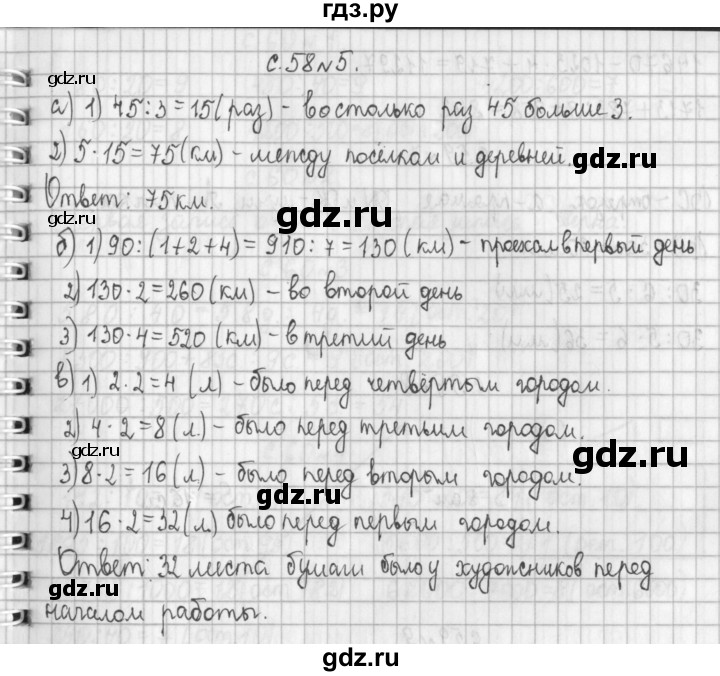 гдз.ру
с.58 №5.
gdz.ru
а) 1) 45:3=15(раз) - во столько раз 45 больше 3.
gdz.ru
2) 5·15=75(км) - между посёлком и деревней.
gdz.ru
gdz.ru
Ответ: 75км.
gdz.ru
б) 1) 90:(1+2+4)=910:7=130(км) - проехал в первый день
2) 130·2=260(км) - во второй день
3) 130·4=520(км) - в третий день
gdz.ru
в) 1) 2·2=4 (л) - было перед четвёртым городом.
2) 4·2=8(л) - было перед третьим городом.
gdz.ru
gdz.ru
3) 8·2=16(л) - было перед вторым городом.
gdz.ru
4) 16·2=32(л) было перед первым городом.
Ответ: 32 листа бумаги было у художников перед
gdz.ru
началом работы.
gdz.ru